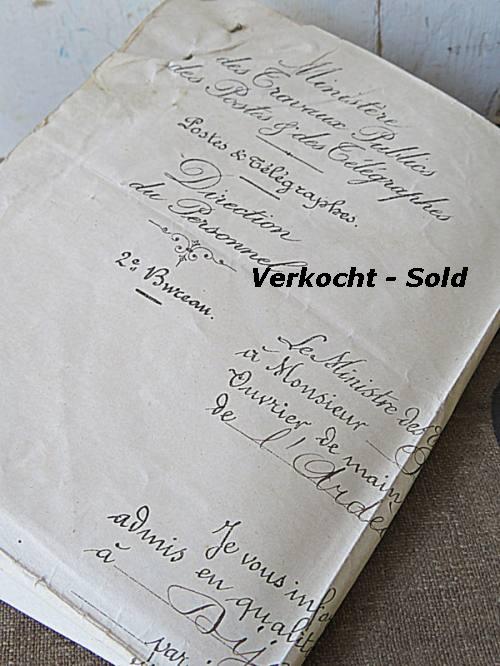 Ministère
des Travaux Publics
des Postes & des Télégraphes
Postes & Télégraphes.
Direction
du Personnel
2e Bureau.
Verkocht - Sold
Le Ministre des
à Monsieur
Ouvrier de main
de l'Ardè
Je vous info
admis en qualit
à Dij
par